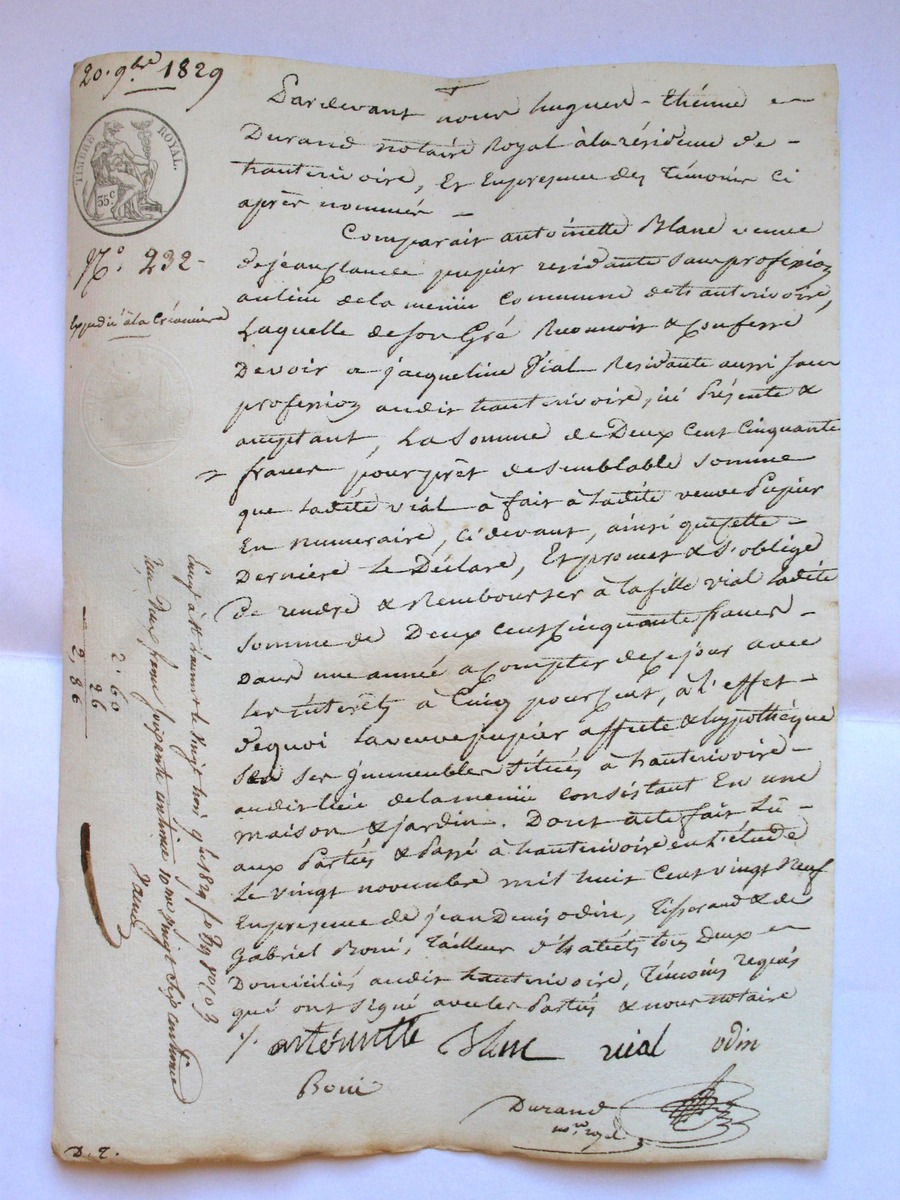 20. 9bre 1829
TIMBRE ROYAL.
35C
N°. 232-
Expédié à la Créancière
Pardevant nous hugues-thénne
Durand notaire Royal à la résidence de
hauterivoire, Et En presence des Témoins Ci
après nommés
Comparait antoinette Blanc veuve
de jean claude pupier residante sans profession
au lieu de la menüe Commune de hauterivoire,
Laquelle de son Gré Reconnoit & Confesse
Devoir a jacqueline Vial Residante aussi sans
profession audit hauterivoire, ici Présente &
acceptant, La Somme de Deux Cent Cinquante
francs pour prêt de semblable somme
que ladite vial a fait à ladite veuve Pupier
En numeraire, Ci devant, ainsi que cette
Derniére Le Déclare, Et promet & S'oblige
De rendre & Rembourser à la fille vial ladite
Somme de Deux Cent Cinquante francs
Dans une année a Compter de ce jour avec
Les interêts à Cinq pour Cent, à L'effet
de quoi la veuve pupier affecte & hypothèque
ses immeubles Situés à hauterivoire
audit lieu de la menüe Consistant En une
maison & jardin. Dont acte fait Lû
aux Parties & Passé à hauterivoire en L'étude
Le vingt novembre mil huit Cent vingt Neuf
En presence de jean Denis odin, Tisserand & de
Gabriel Boni, Tailleur d'habits tous Deux
Domiciliés audit hauterivoire, Témoins requis
qui ont Signé avec les Parties & nous notaire
antoinette Blanc vial odin
Boni
Durand
nre royal
vingt trois 9bre 1829 fo
deux francs soixante centimes vingt Six centimes
2. 60
26
2, 86
D. T.